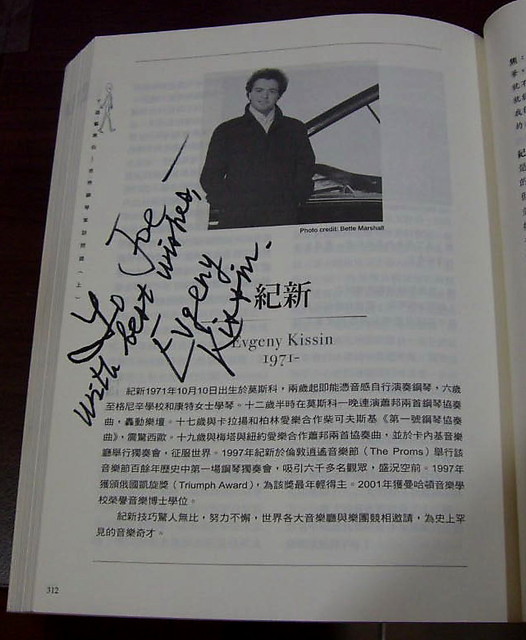 Photo credit: Bette Marshall
To Joe —
with best wishes,
Evgeny
Kissin.
紀新
Evgeny Kissin
1971-
紀新1971年10月10日出生於莫斯科，兩歲起即能憑音感自行演奏鋼琴，六歲
至格尼辛學校和康特女士學琴。十二歲半時在莫斯科一晚連演蕭邦兩首鋼琴協奏
曲，轟動樂壇。十七歲與卡拉揚和柏林愛樂合作柴可夫斯基《第一號鋼琴協奏
曲》，震驚西歐。十九歲與梅塔與紐約愛樂合作蕭邦兩首協奏曲，並於卡內基音樂
廳舉行獨奏會，征服世界。1997年紀新於倫敦逍遙音樂節（The Proms）舉行該
音樂節百餘年歷史中第一場鋼琴獨奏會，吸引六千多名觀眾，盛況空前。1997年
獲頒俄國凱旋獎（Triumph Award），為該獎最年輕得主。2001年獲曼哈頓音樂學
校榮譽音樂博士學位。
紀新技巧驚人無比，努力不懈，世界各大音樂廳與樂團競相邀請，為史上罕
見的音樂奇才。
312